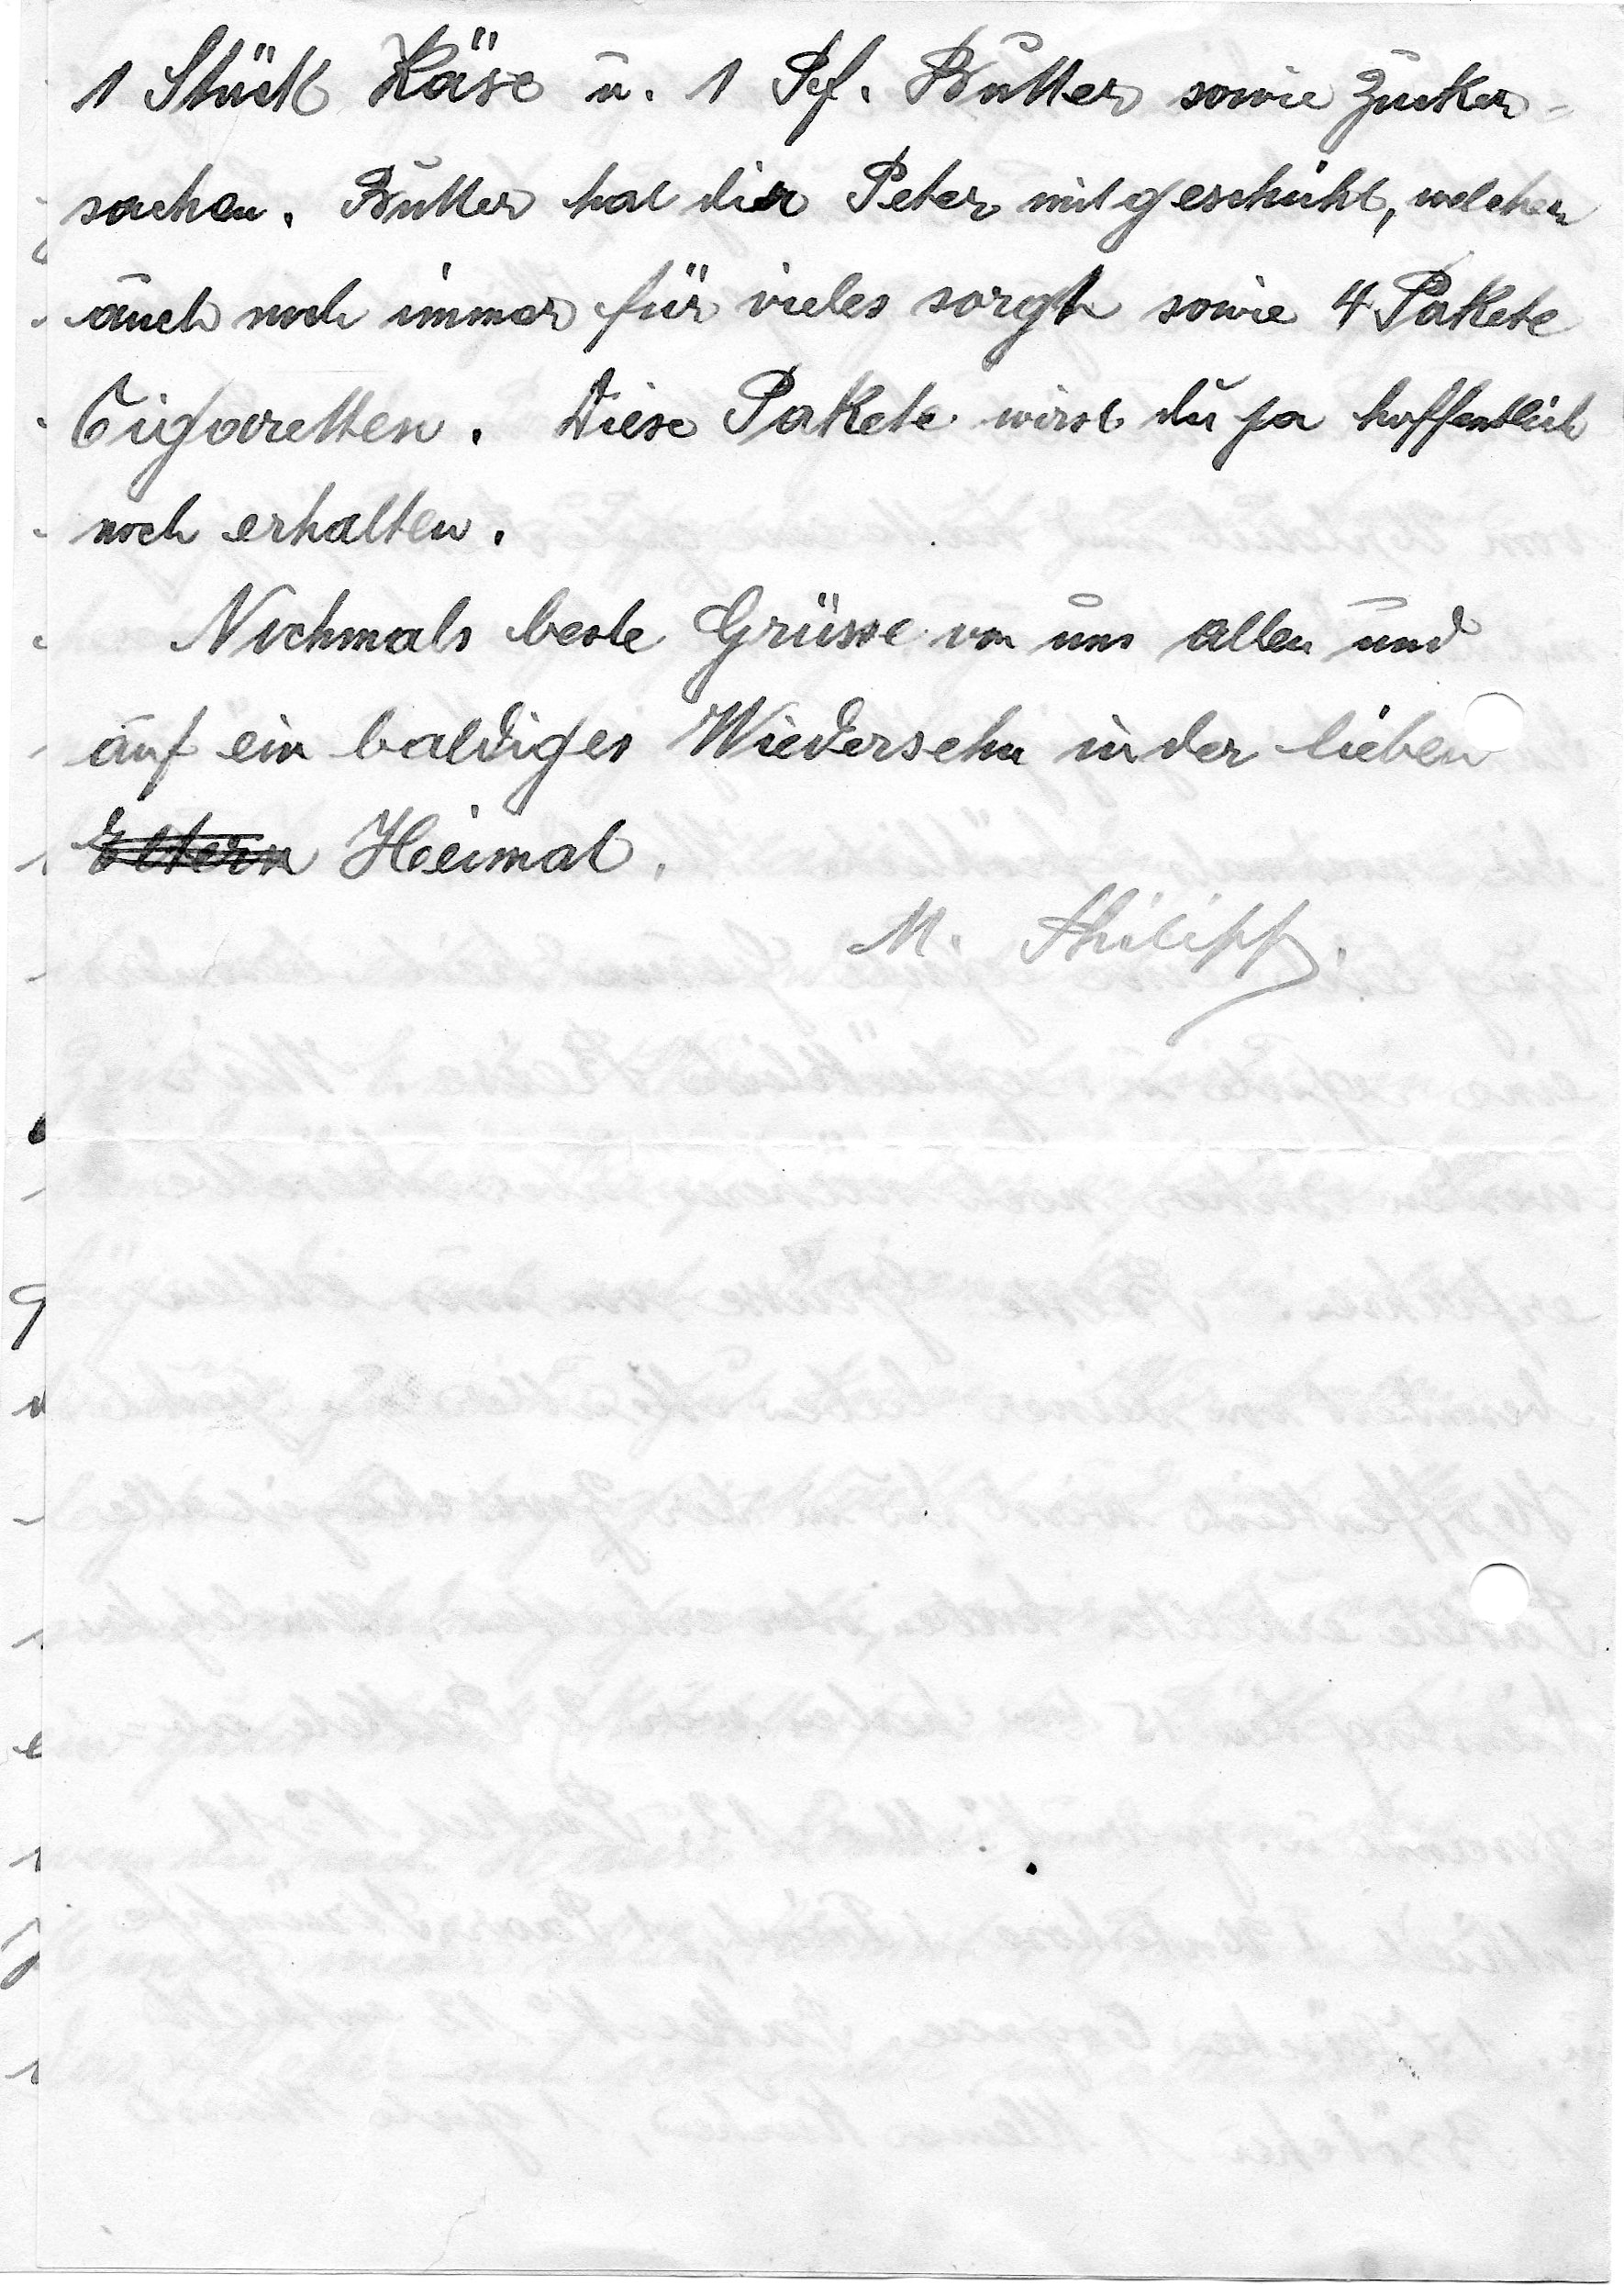 1 Stück Käse u. 1 Pf. Butter sowie Zucker-
sachen. Butter hat dir Peter mitgeschickt, welcher
auch noch immer für vieles sorgt sowie 4 Pakete
Cigaretten. Diese Pakete wirst du ja hoffentlich
noch erhalten.
Nochmals beste Grüsse von uns allen und
auf ein baldiges Wiedersehn in der lieben
Eltern Heimat.
M. Philipp.